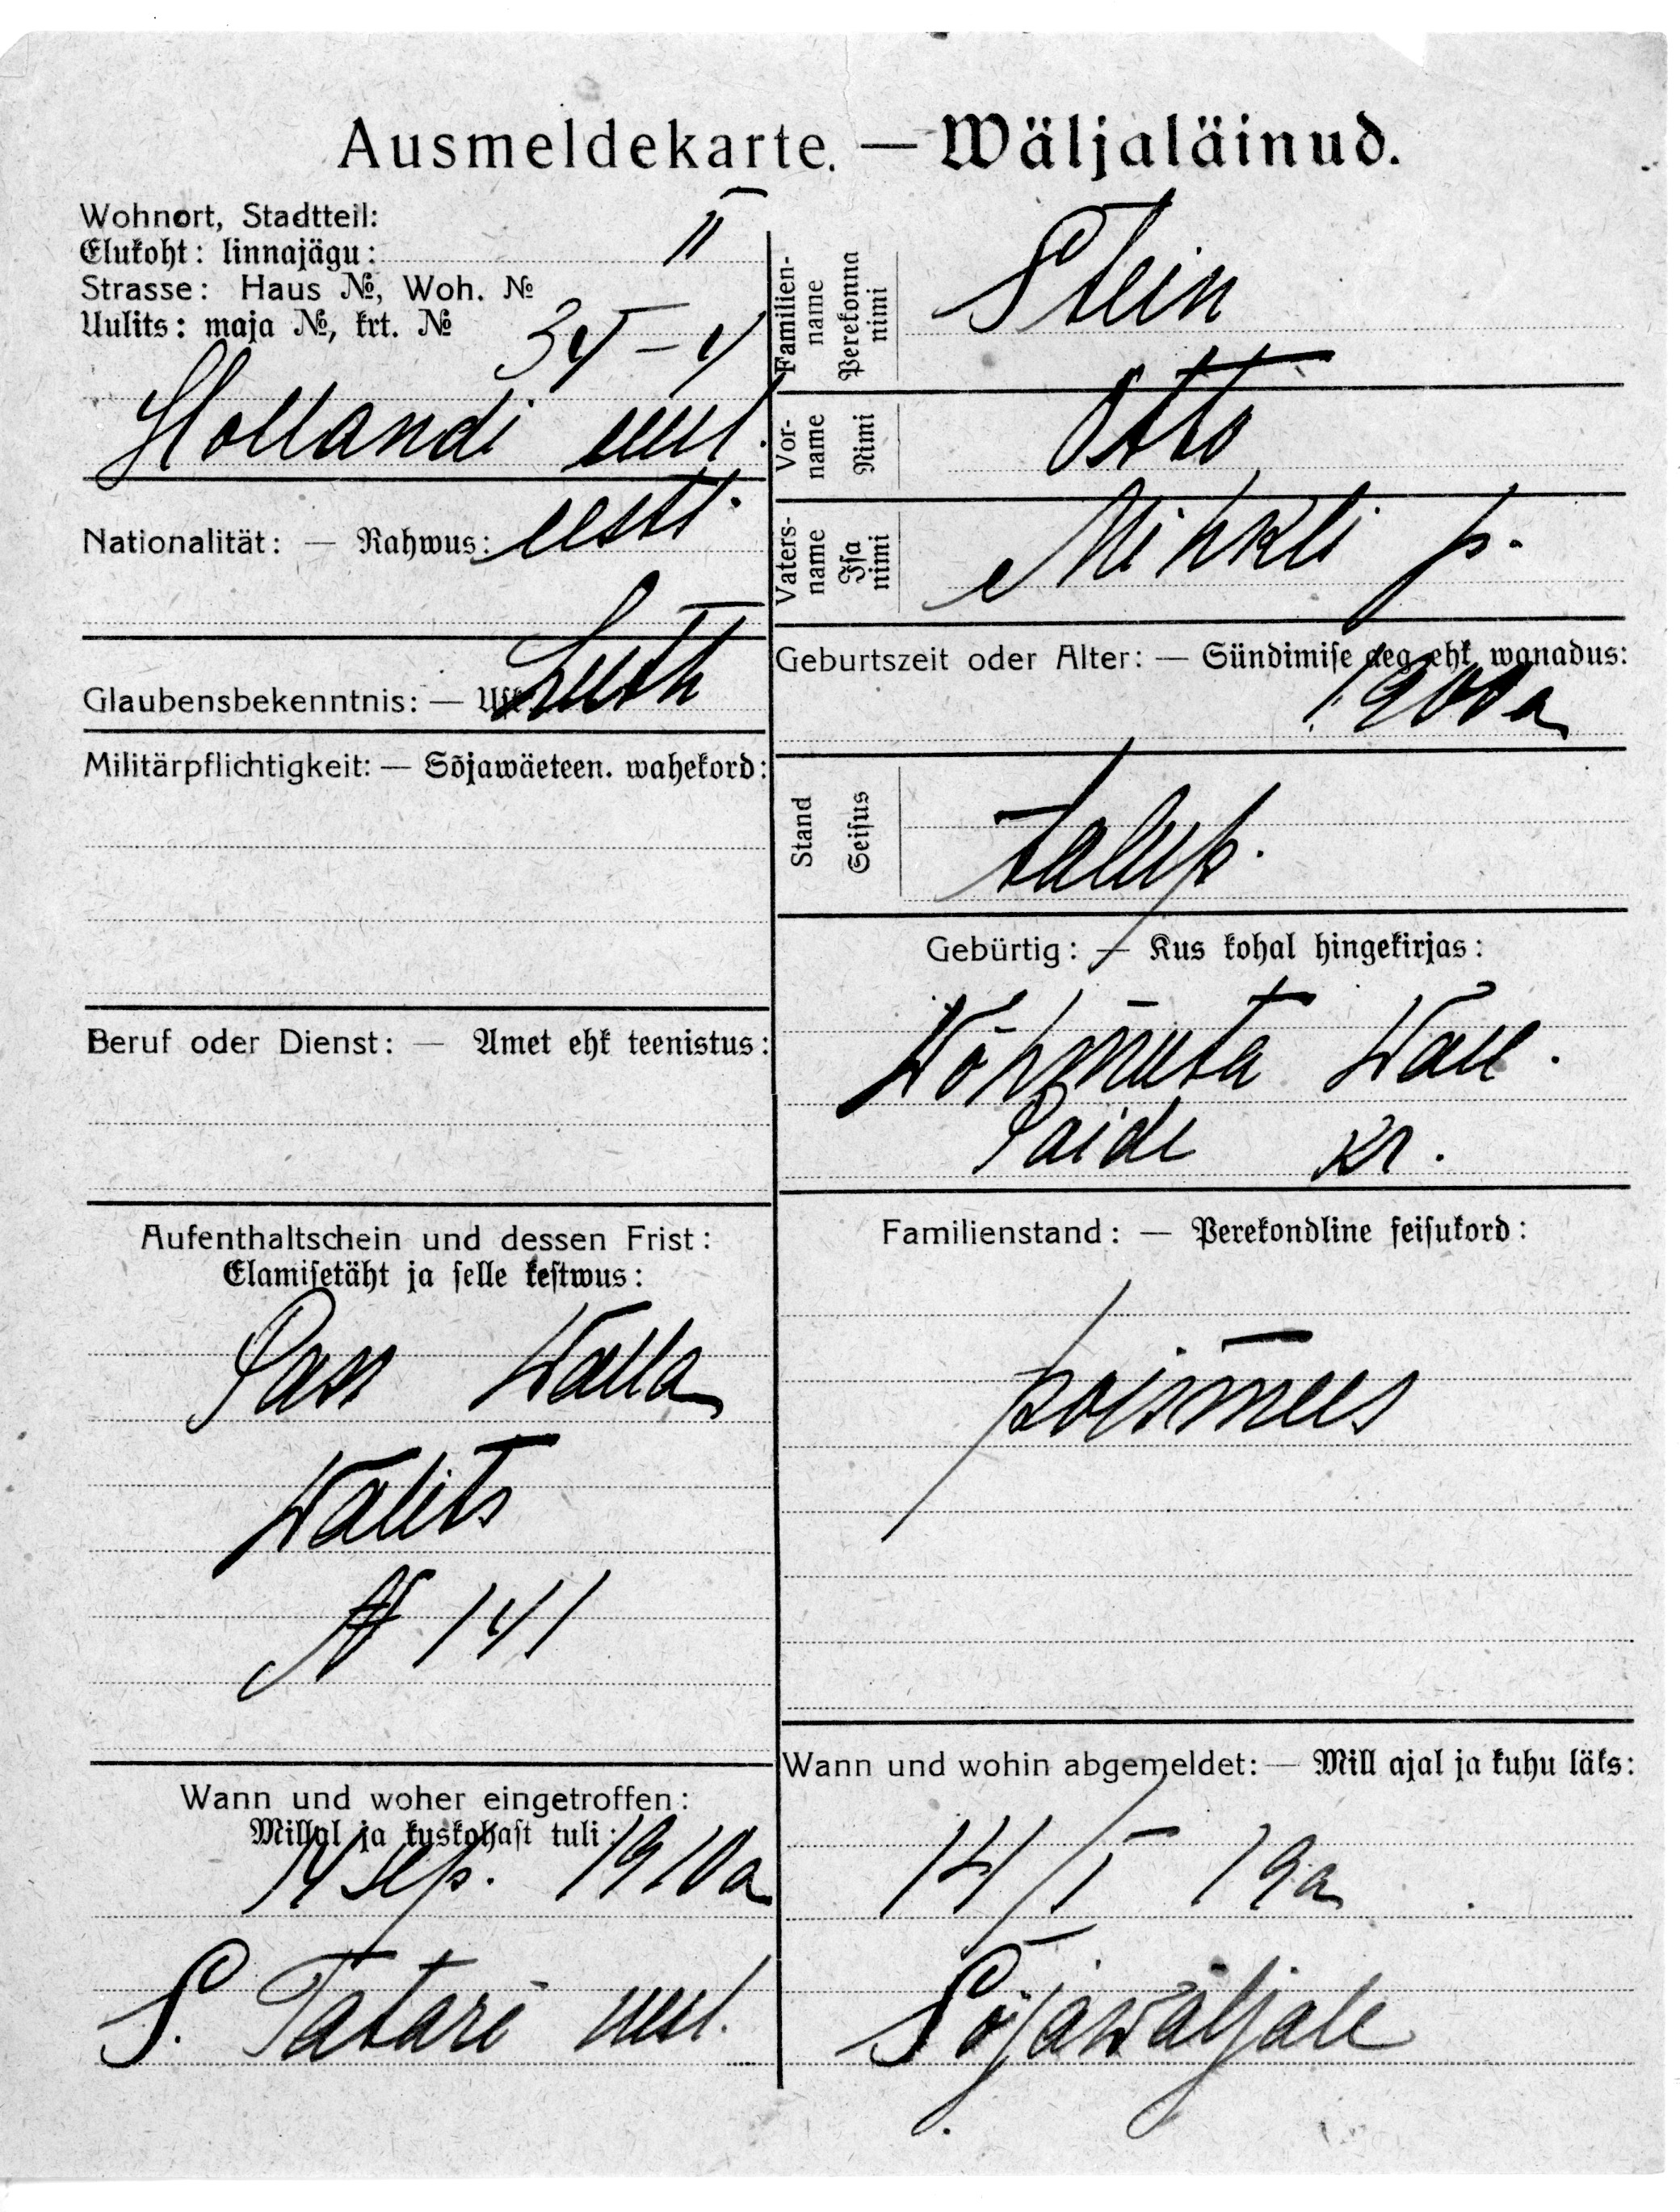 Ausmeldekarte. — Wäljaläinud.
Wohnort, Stadtteil:
Elukoht: linnajägu: II
Strasse: Haus №, Woh. №
Uulits: maja №, krt. № 34–4
Hollandi uul.
Nationalität: — Rahwus: eesti
Glaubensbekenntnis: — Usk Luth
Militärpflichtigkeit: — Sõjawäeteen. wahekord:
Beruf oder Dienst: — Amet ehk teenistus:
Aufenthaltschein und dessen Frist:
Elamisetäht ja selle kestwus:
Pass Walla
Walits
№ 141
Wann und woher eingetroffen:
Millal ja kuskohast tuli:
14 Sep. 1910a
S. Tatari uul.
Familien-
name
Perekonna
nimi
Stein
Vor-
name
Nimi
Otto
Vaters-
name
Isa
nimi
Mihkli p.
Geburtszeit oder Alter: — Sündimise aeg ehk wanadus:
1900a
Stand
Seisus
talup.
Gebürtig: — Kus kohal hingekirjas:
Wõhmuta Wall.
Paide kr.
Familienstand: — Perekondline seisukord:
poismees
Wann und wohin abgemeldet: — Mill ajal ja kuhu läks:
14/I 19a
Sõjawäljale